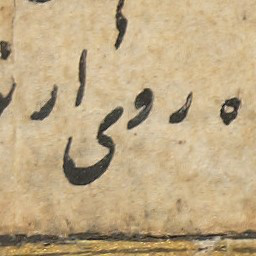 ه روی ار